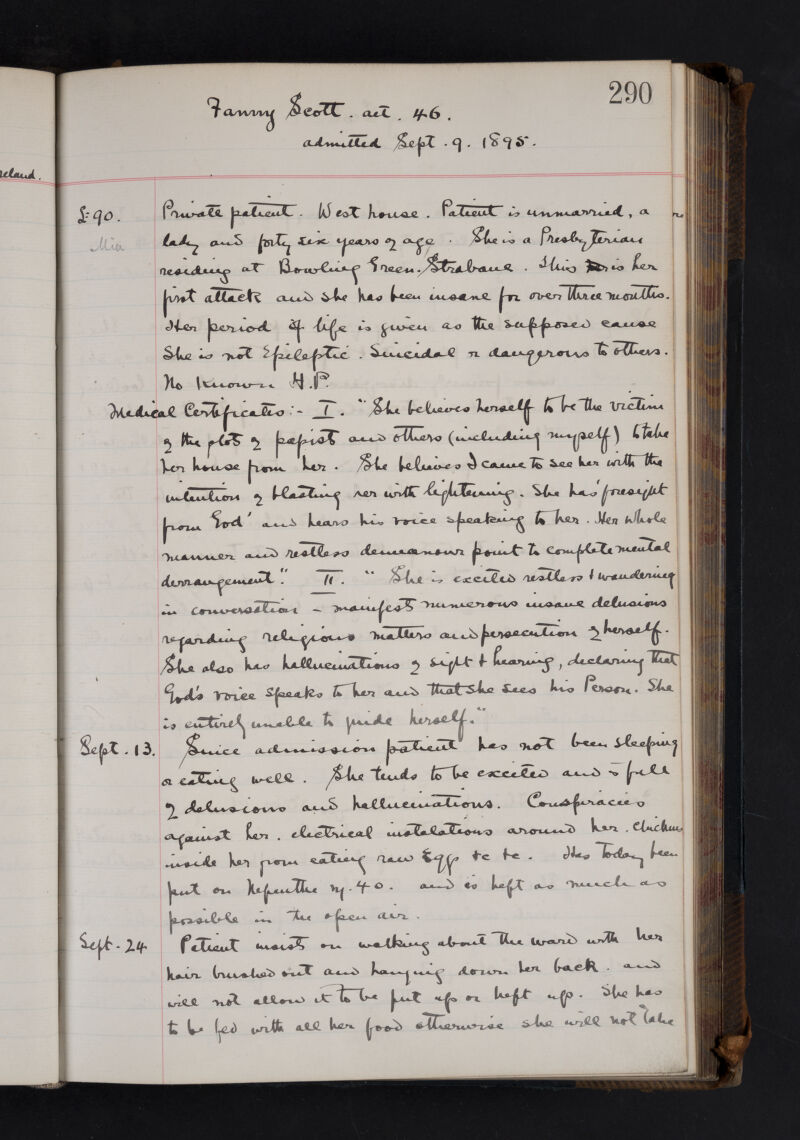 290
Fanny Scott. aet. 46.
admitted Sept. 9. 1895.
reland.
L:90.
Private patient. West house. Patient is unmarried, a
lady and forty six years of age. She is a Presbyterian
residing at Bowling Green. Strabane. This is her
first attack and she has been insane for over three months.
Her period of life is given as the supposed cause
She is not Epileptic. Suicidal or dangerous to others.
No Known H.P.
Medical Certificates:- I. "She believes herself to be the victim
of the plots of papist and others (including myself) to take
her house from her. She believes I came to see her with the
intention of blasting her with lightening. She has 'foresight
from God' and hears his voice speaking to her. Her whole
manner and restless demeanour point to complete mental
derrangement". II. "She is excited restless & wandering
in conversation - manifests numerous insane delusions
regarding religious matters and persecution of herself.
She also has hallucinations of sight & hearing, declaring that
God's voice speaks to her and that she sees his Person. She
is entirely unable to guide herself."
Sept. 13. Since admission patient has not been sleeping
or eating well. She tends to be excited and is full
of delusions and hallucinations. Conspiracies
against her. electrical instalations around her. Chickens
inside her from eating raw Eggs &c &c. Has today been
put on Nepenthe m. 40. and is kept as much as
possible in the open air.
Sept. 24 Patient insists on walking about the ward with her
hair brushed out and hanging down her back. and
will not allow it to be put up or kept up. She has
to be fed with all her food otherwise she will not take